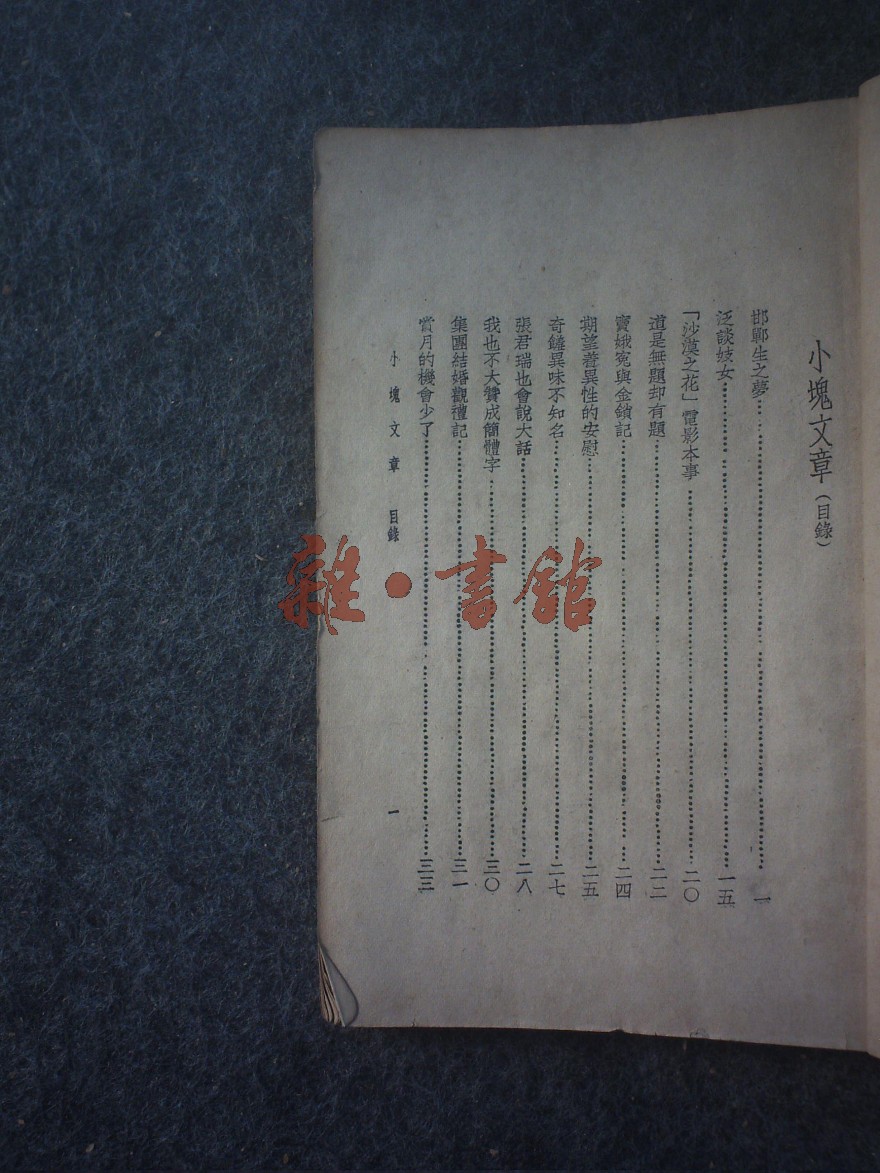 小塊文章(目錄)
邯鄲生之夢…………一
泛談妓女…………一五
「沙漠之花」電影本事…………二〇
道是無題却有題…………二二
竇娥冤與金鎖記…………二四
期望着異性的安慰…………二五
奇饒異味不知名…………二七
張君瑞也會說大話…………二八
我也不大贊成簡體字…………三〇
集團結婚觀禮記…………三一
賞月的機會少了…………三三
小塊文章 目錄 一
雜·書館